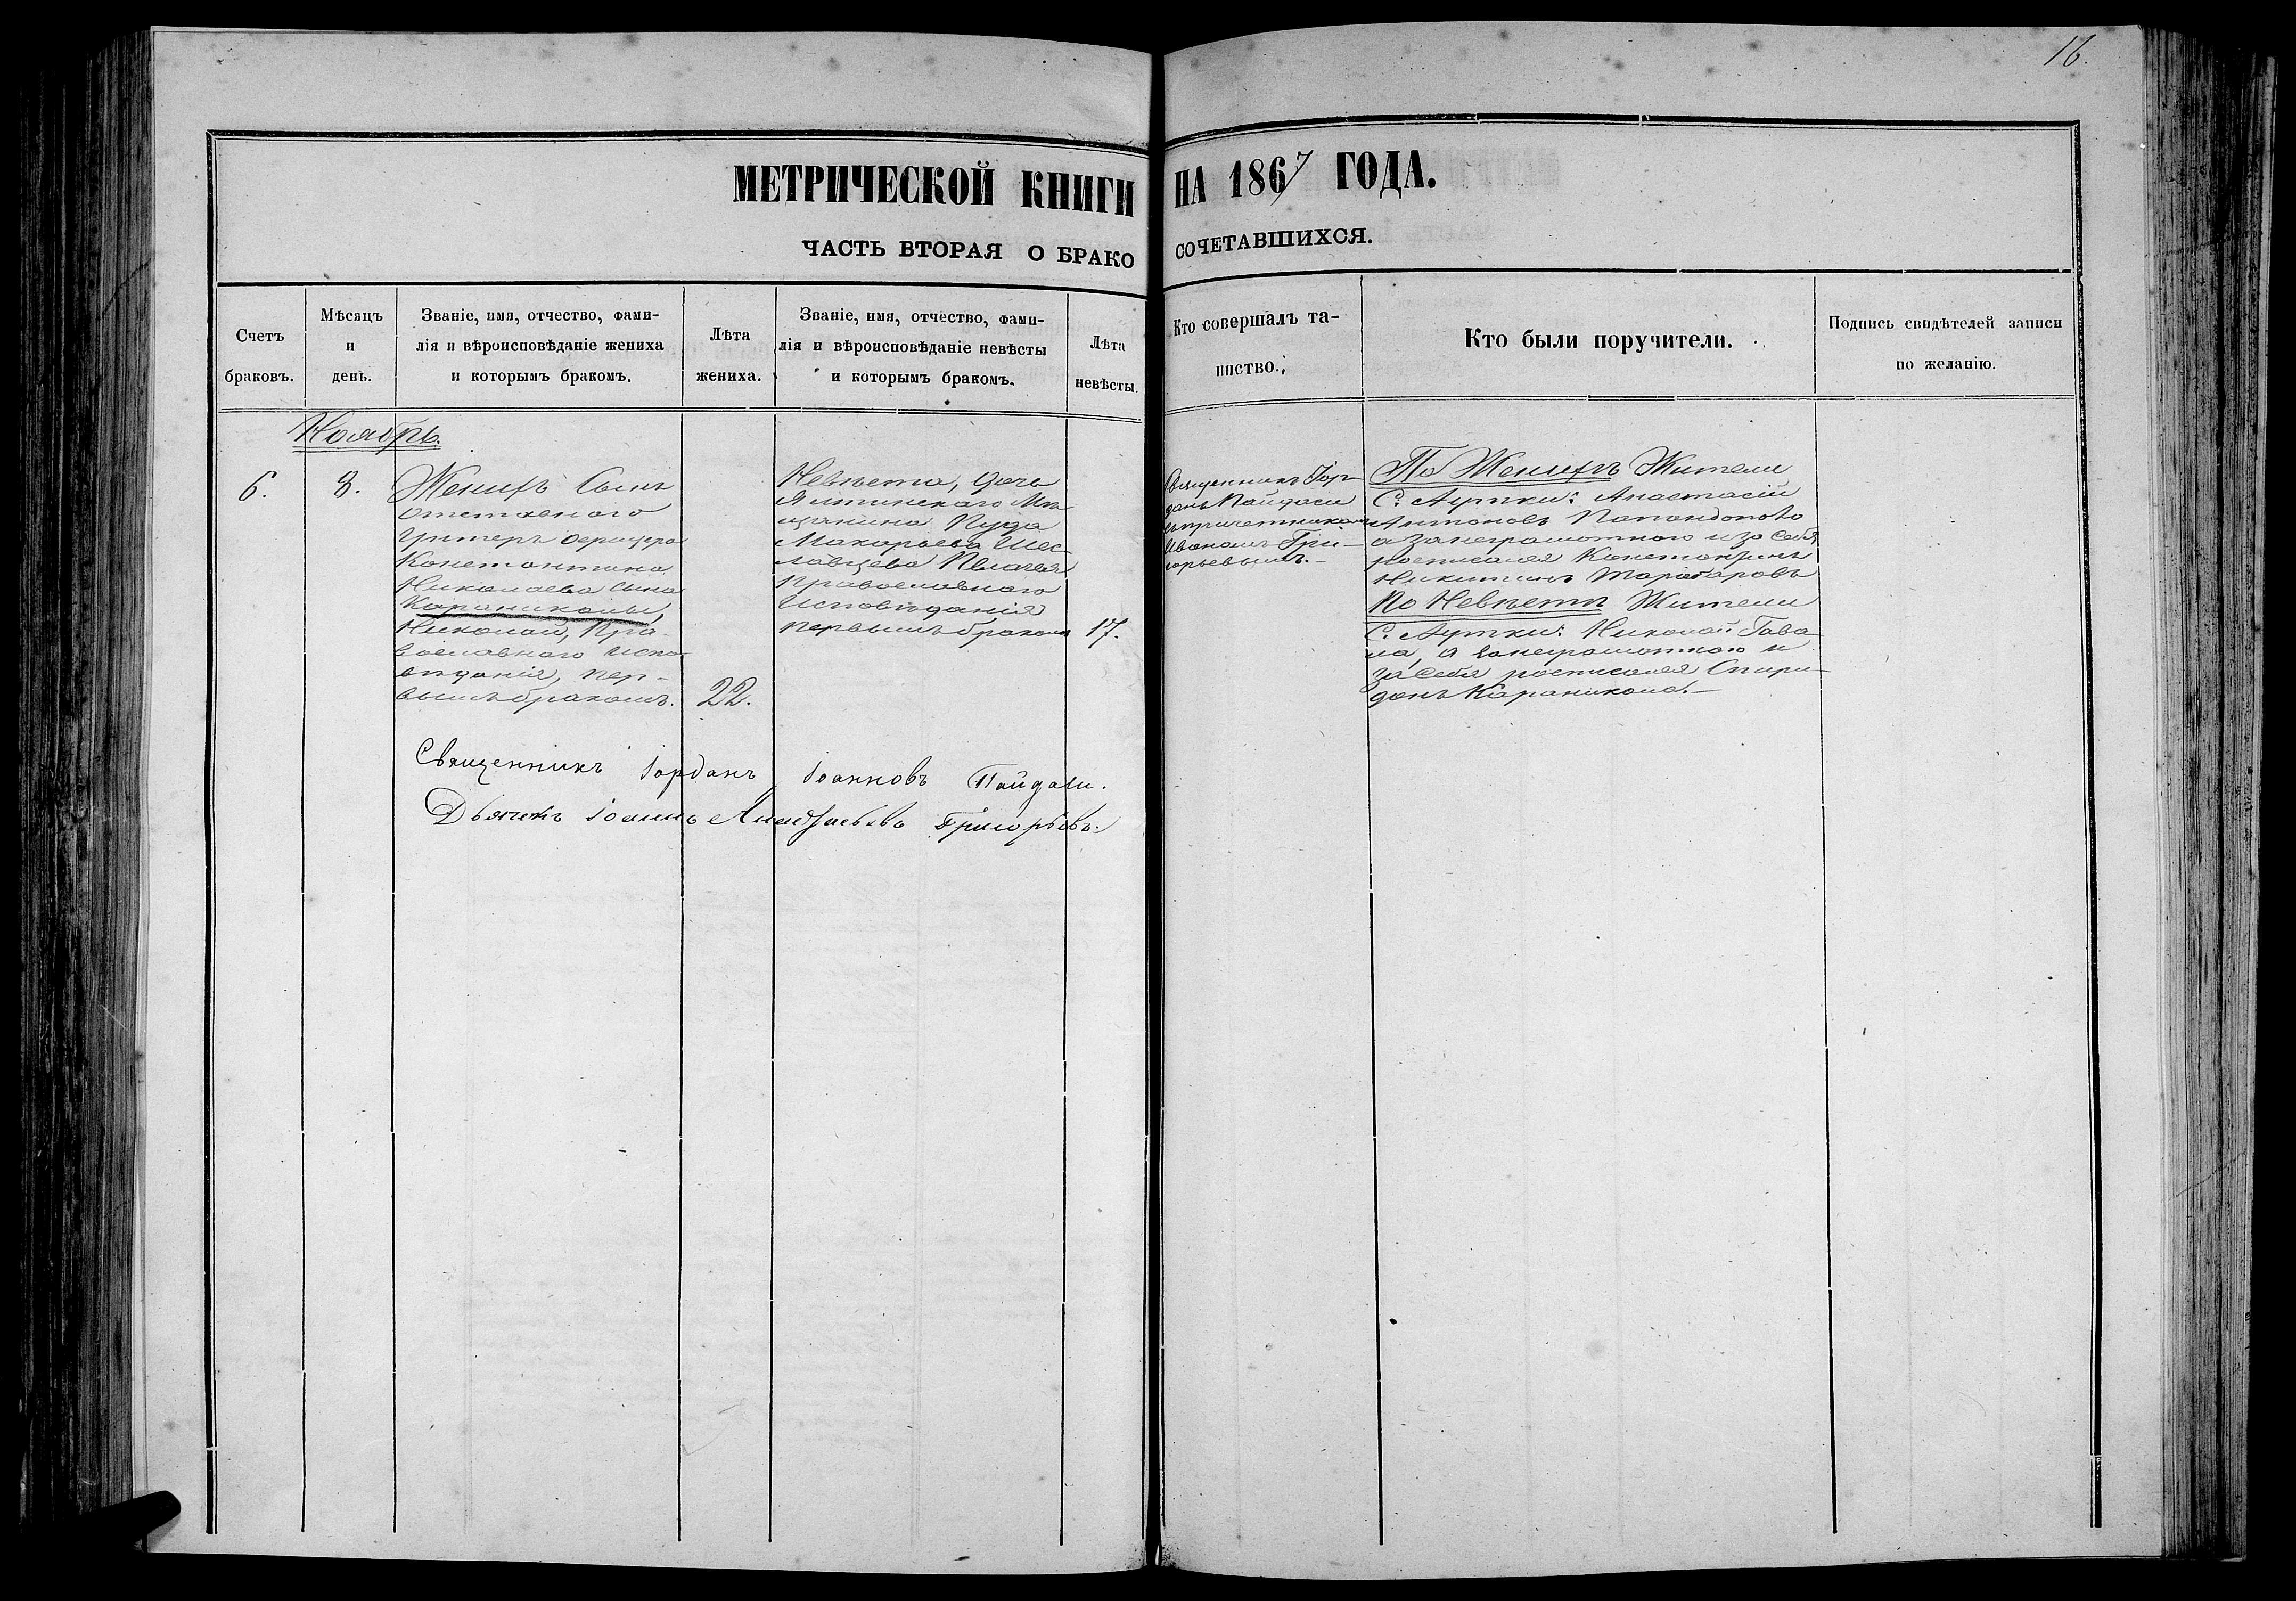 16.
МЕТРИЧЕСКОЙ КНИГИ НА 1867 ГОДА.
ЧАСТЬ ВТОРАЯ О БРАКО СОЧЕТАВШИХСЯ.
Счетъ
браковъ.
Мѣсяцъ
и
день.
Званіе, имя, отчество, фами-
лія и вѣроисповѣданіе жениха
и которымъ бракомъ.
Лѣта
жениха.
Званіе, имя, отчество, фами-
лія и вѣроисповѣданіе невѣсты
и которымъ бракомъ.
Лѣта
невѣсты.
Кто совершалъ та-
инство.
Кто были поручители.
Подпись свидѣтелей записи
по желанію.
Ноябрь.
6.
8.
Женихъ Сынъ
отставного
Унтеръ офицера
Константина
Николаева сына
Караниколы,
Николай, Пра-
вославного испо-
вѣданія, пер-
вымъ бракомъ.
22.
Невѣста, дочь
Ялтинскаго Мѣ
щанина
Макарьева
Пелагея
Православнаго
Исповѣданія
первымъ бракомъ
17.
Священникъ Іор-
данъ Пайдаси
съ причетникомъ
Иваномъ Гри-
горьевымъ.
По Женихѣ Жители
С. Аутки: Анастасій
Антоновъ
а за неграмотного и за себя
росписался Константинъ
Никитинъ
По Невѣстѣ Жители
С. Аутки: Николай Гава
ла, а за неграмотного и
за себя росписался Спири-
донъ Караникола.
Священникъ Іорданъ Іоанновъ Пайдаси.
Дьячекъ Іоаннъ Григорьевъ.